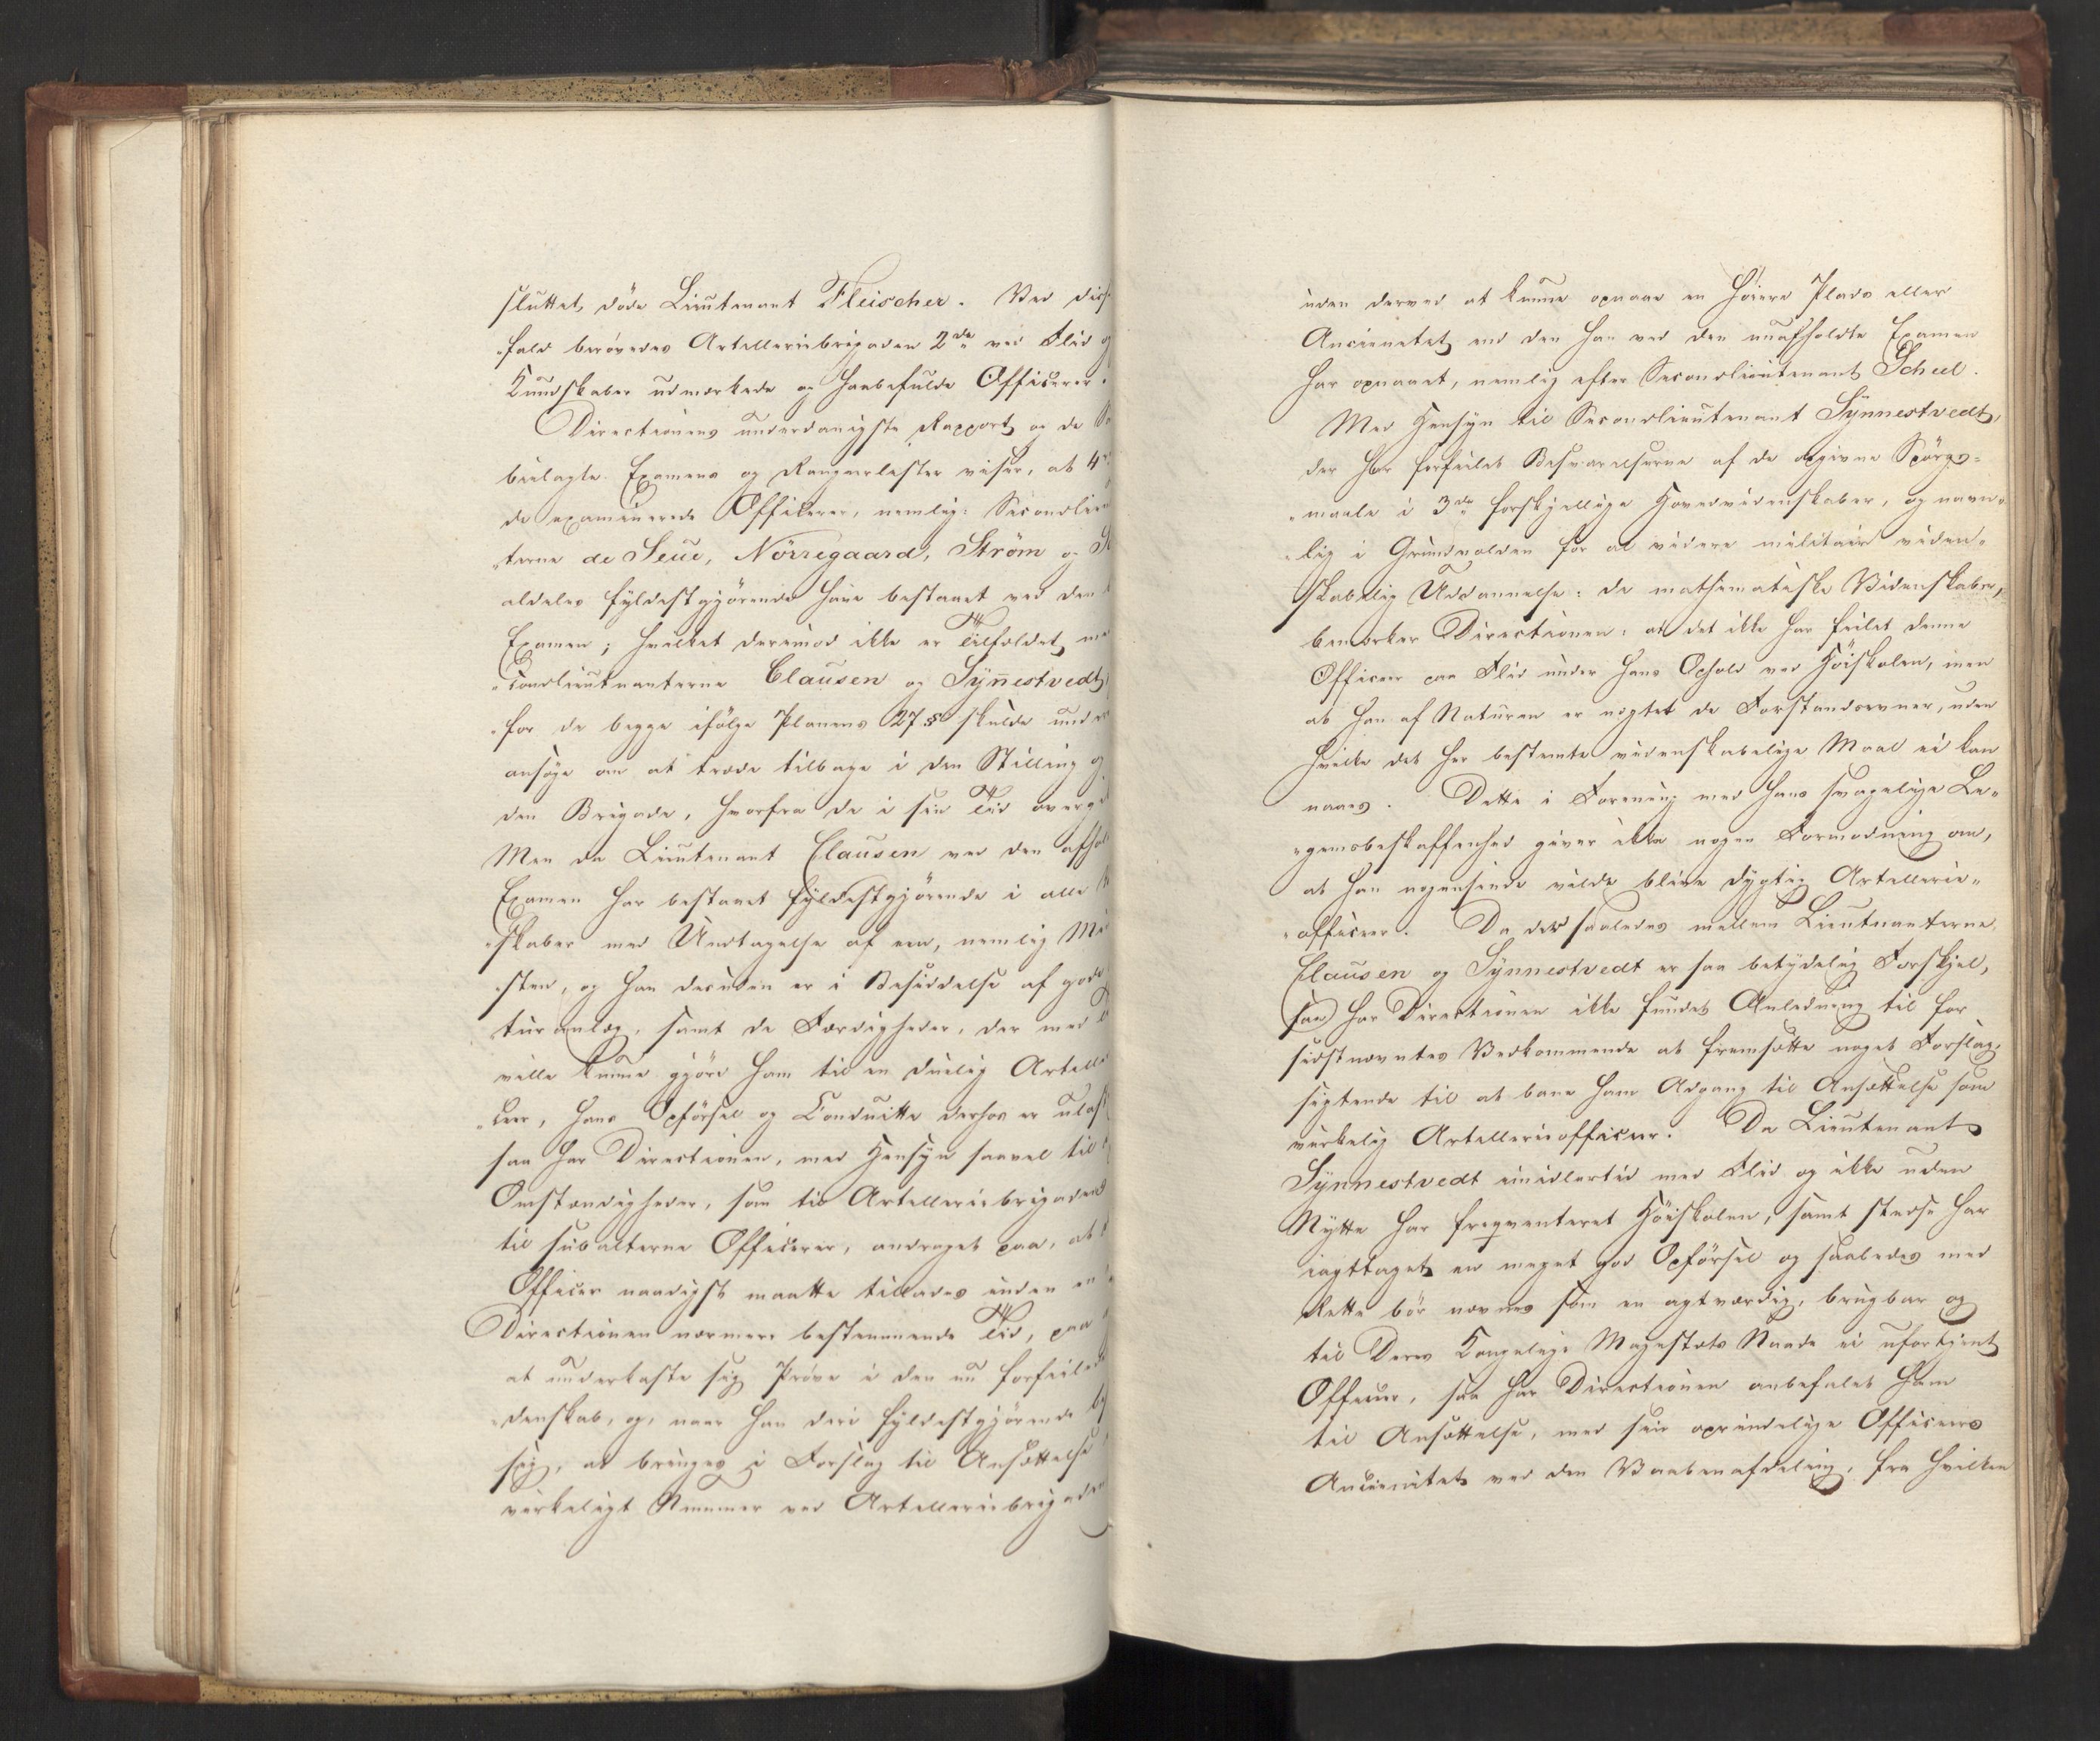 sluttet, døde Lieutenant Fleischer. Ved disse
„fald berøvedes Artilleriebrigaden 2de ved Flid og
Kundskaber udmærkede og haabefulde Officerer.
Directionens underdanigste Rapport og de
bielagte Examens og Rangeerlister viser, at 4re
de examinerede Officerer, nemlig: Secondlieu
„terne de Seue, Nörregaard, Ström og
aldeles fyldestgjörende have bestaaet ved den
Examen; hvilket derimod ikke er Tilfældet med
„condlieutnanterne Clausen og Synnestvedt,
for de begge ifölge Planens 27 § skulde und
ansöge om at træde tilbage i den Stilling og
den Brigade, hvorfra de i sin Tid overg
Men da Lieutenant Clausen ved den afhol
Examen har bestaaet fyldestgjörende i alle
„skaber med Undtagelse af een, nemlig
„sten, og han desuden er i Besiddelse af gode
„turanlæg, samt de Færdigheder, der med
ville kunne gjöre ham til en duelig Artille
„ceer, hans Opförsel og Conduitte derhos er ulast
saa har Directionen, med Hensyn saavel til
Omstændigheder, som til Artilleriebrigadens
til subalterne Officerer, andraget paa, at
Officer naadigst maatte tillades inden en
Directionen nærmere bestemmende Tid, paa
at underkaste sig Pröve i den nu forfeilede
„denskab, og, naar han deri fyldestgjörende
sig, at bringes i Forslag til Ansættelse
virkeligt Nummer ved Artilleriebrigaden
uden derved at kunne opnaae en höiere Plads eller
Ancienitet end den han ved den nu afholdte Examen
har opnaaet, nemlig efter Secondlieutenant Scheel.
Med Hensyn til Secondlieutenant Synnestvedt,
der har forfeilet Besvarelserne af de opgivne Spörgs-
„maale i 3de forskjellige Hovedvidenskaber, og navn„
„lig i Grundvolden for al videre militair viden„
„skabelig Uddannelse: de mathematiske Videnskaber,
bemærker Directionen: at det ikke har feilet denne
Officeer paa Flid under hans Ophold ved Höiskolen, men
at han af Naturen er nægtet de Forstandsevner, uden
hvilke det her bestemte videnskabelige Maal ei kan
naaes. Dette i Forening med hans svagelige Le„
„gemsbeskaffenhed giver ikke nogen Formodning om,
at han nogensinde vilde blive dygtig Artillerie„
„officeer. Da der saaledes mellem Lieutnanterne
Clausen og Synnestvedt er saa betydelig Forskjel,
saa har Directionen ikke fundet Anledning til for
sidstnævntes Vedkommende at fremsætte noget Forslag,
sigtende til at bane ham Adgang til Ansættelse som
virkelig Artillerieofficeer. Da Lieutenant
Synnestvedt imidlertid med Flid og ikke uden
Nytte har freqventeret Höiskolen, samt stedse har
iagttaget en meget god Opförsel og saaledes med
Rette bör nævnes som en agtværdig, brugbar og
til Deres Kongelige Majestæts Naade ei ufortjent
Officeer, saa har Directionen anbefalet ham
til Ansættelse, med sin oprindelige Officeers
Ancienitet ved den Vaabenafdeling, fra hvilken